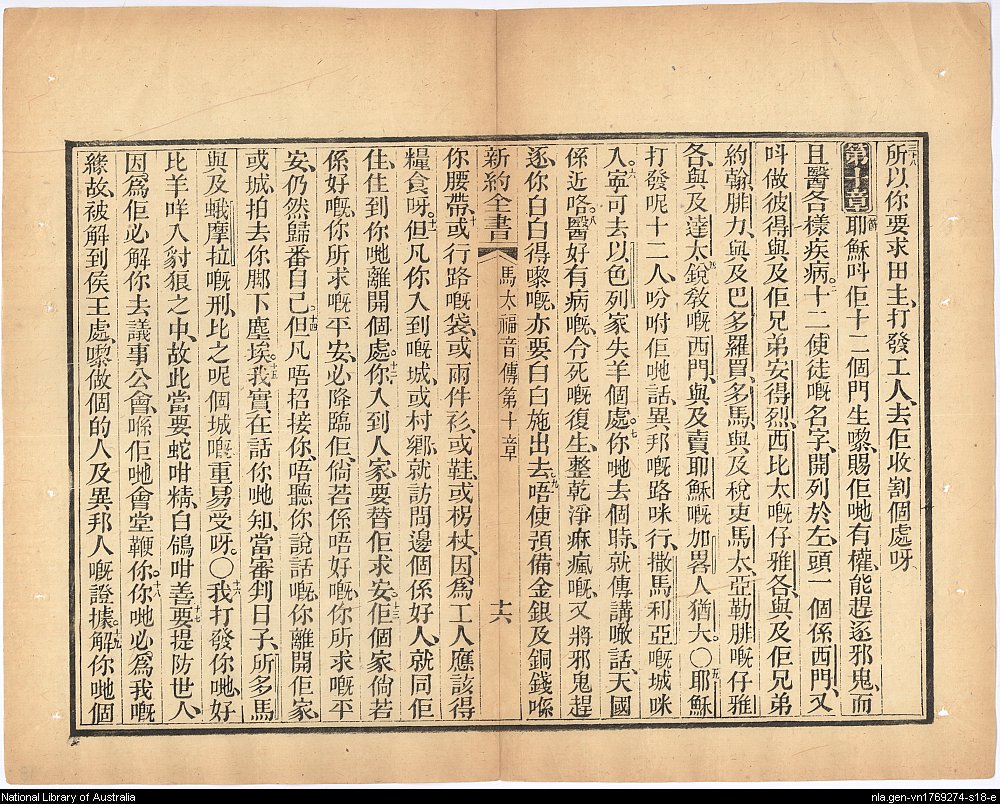 三十八所以你要求田主、打發工人、去佢收割個處呀
第十章 耶穌呌佢十二個門生嚟、賜佢哋有權、能趕逐邪鬼、而
且醫各樣疾病。二十二使徒嘅名字、開列於左、頭一個係西門、又
呌做彼得、與及佢兄弟安得烈、西比太嘅仔雅各、與及佢兄弟
約翰、腓力、與及巴多羅買、多馬、與及稅吏馬太、亞勒腓嘅仔雅
各、與及達太、四銳敎嘅西門、與及賣耶穌嘅加畧人猶大。〇五耶穌
打發呢十二人、吩咐佢哋話、異邦嘅路咪行、撒馬利亞嘅城咪
入。六寧可去以色列家失羊個處。七你哋去個時、就傳講噉話、天國
係近咯。八醫好有病嘅、令死嘅復生、整乾淨痳瘋嘅、又將邪鬼趕
逐、你白白得嚟嘅、亦要白白施出去。九唔使預備金銀及銅錢喺
新約全書 馬太福音傳第十章 十六
你腰帶、十或行路嘅袋、或兩件衫、或鞋、或柺杖、因爲工人應該得
糧食呀。十一但凡你入到嘅城、或村鄉、就訪問邊個係好人、就同佢
住、住到你哋離開個處。十二你入到人家、要替佢求安。十三佢個家倘若
係好嘅、你所求嘅平安、必降臨佢、倘若係唔好嘅、你所求嘅平
安、仍然歸番自己。十四但凡唔招接你、唔聽你說話嘅、你離開佢家、
或城、拍去你脚下塵埃。十五我實在話你哋知、當審判日子、所多馬
與及蛾摩拉嘅刑、比之呢個城嘅、重易受呀。〇十六我打發你哋、好
比羊咩入豺狼之中、故此當要蛇咁精、白鴿咁善。十七要提防世人、
因爲佢必解你去議事公會、喺佢哋會堂鞭你。十八你哋必爲我嘅
緣故、被解到侯王處、嚟做個的人及異邦人嘅證據。十九解你哋個
National Library of Australia
nla.gen-vn1769274-s18-e